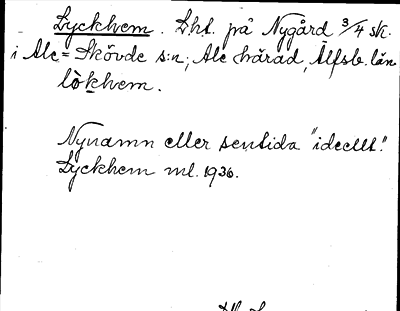 Lyckhem. Lht. på Nygård 3/4 sk.
i Ale-Skövde s:n, Ale härad, Älfsb. län
lòkhem.
Nynamn eller sentida "ideellt".
Lyckhem ml. 1936.